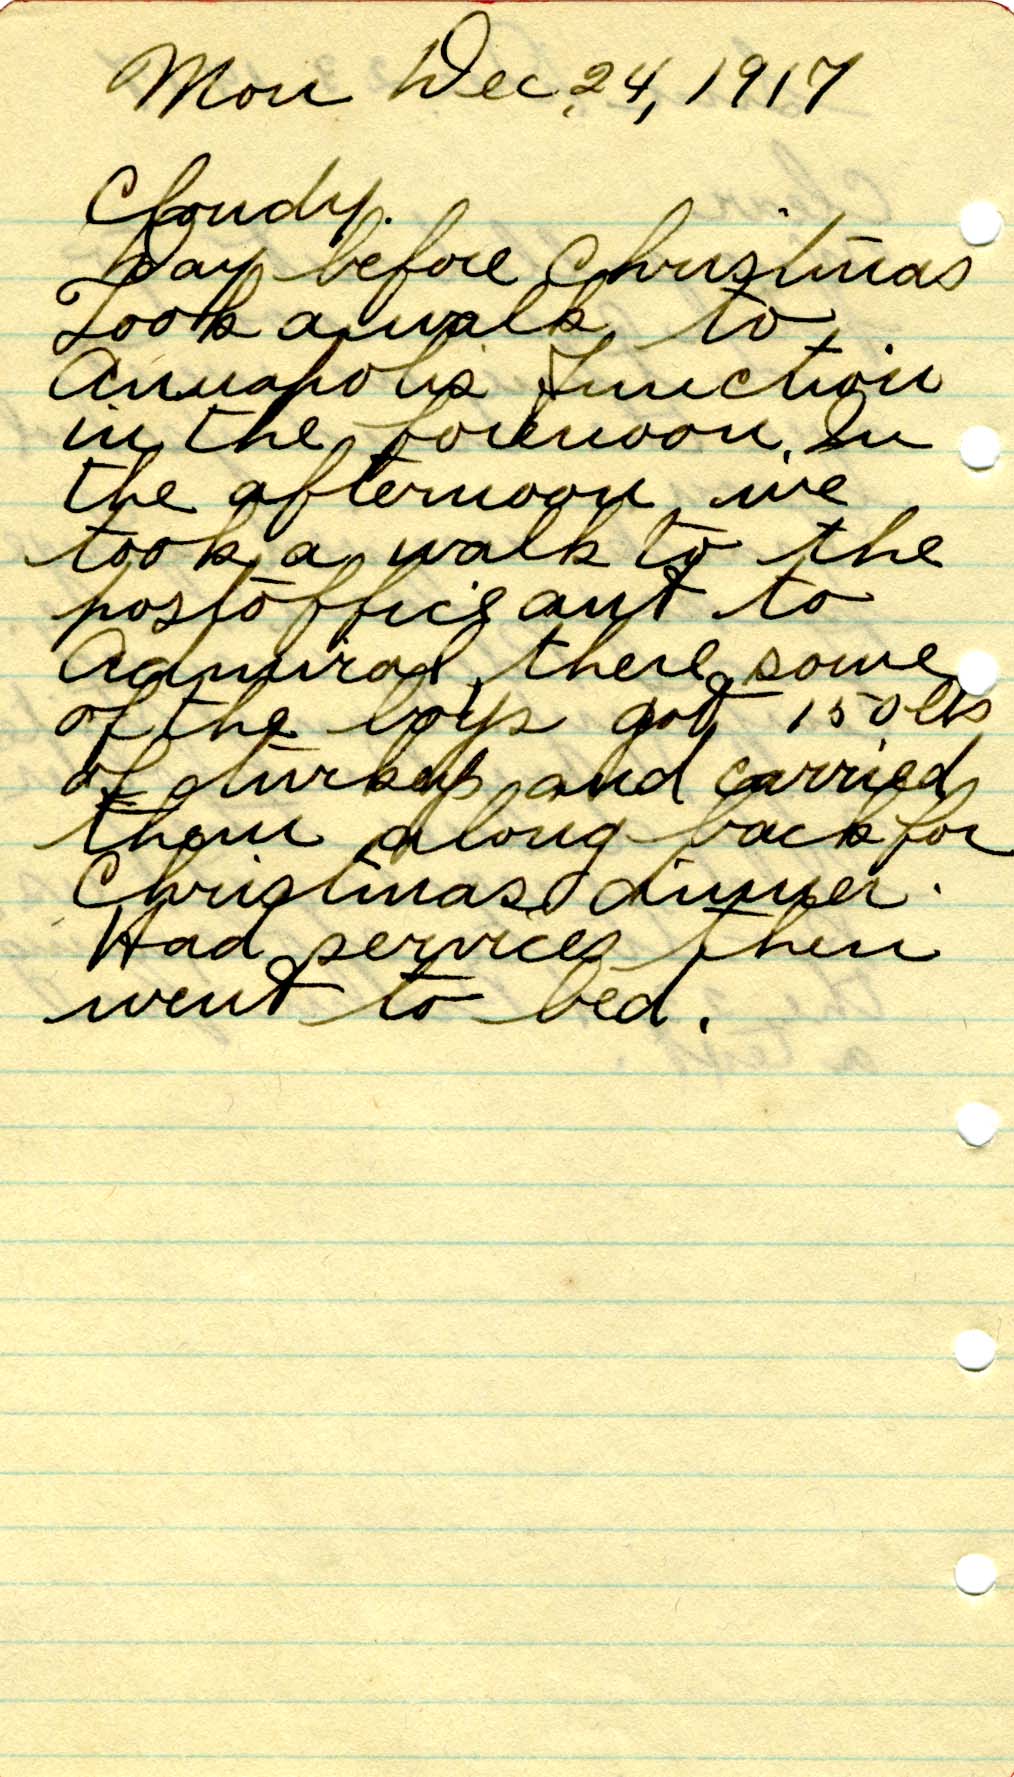 Mon Dec 24, 1917
Cloudy.
Day before Christmas
Took a walk to
Annapolis Junction
in the forenoon. In
the afternoon we
took a walk to the
postoffice ant to
Admiral, there some
of the boys got 150 lbs
of turkey and carried
them along back for
Christmas dinner.
Had services then
went to bed.